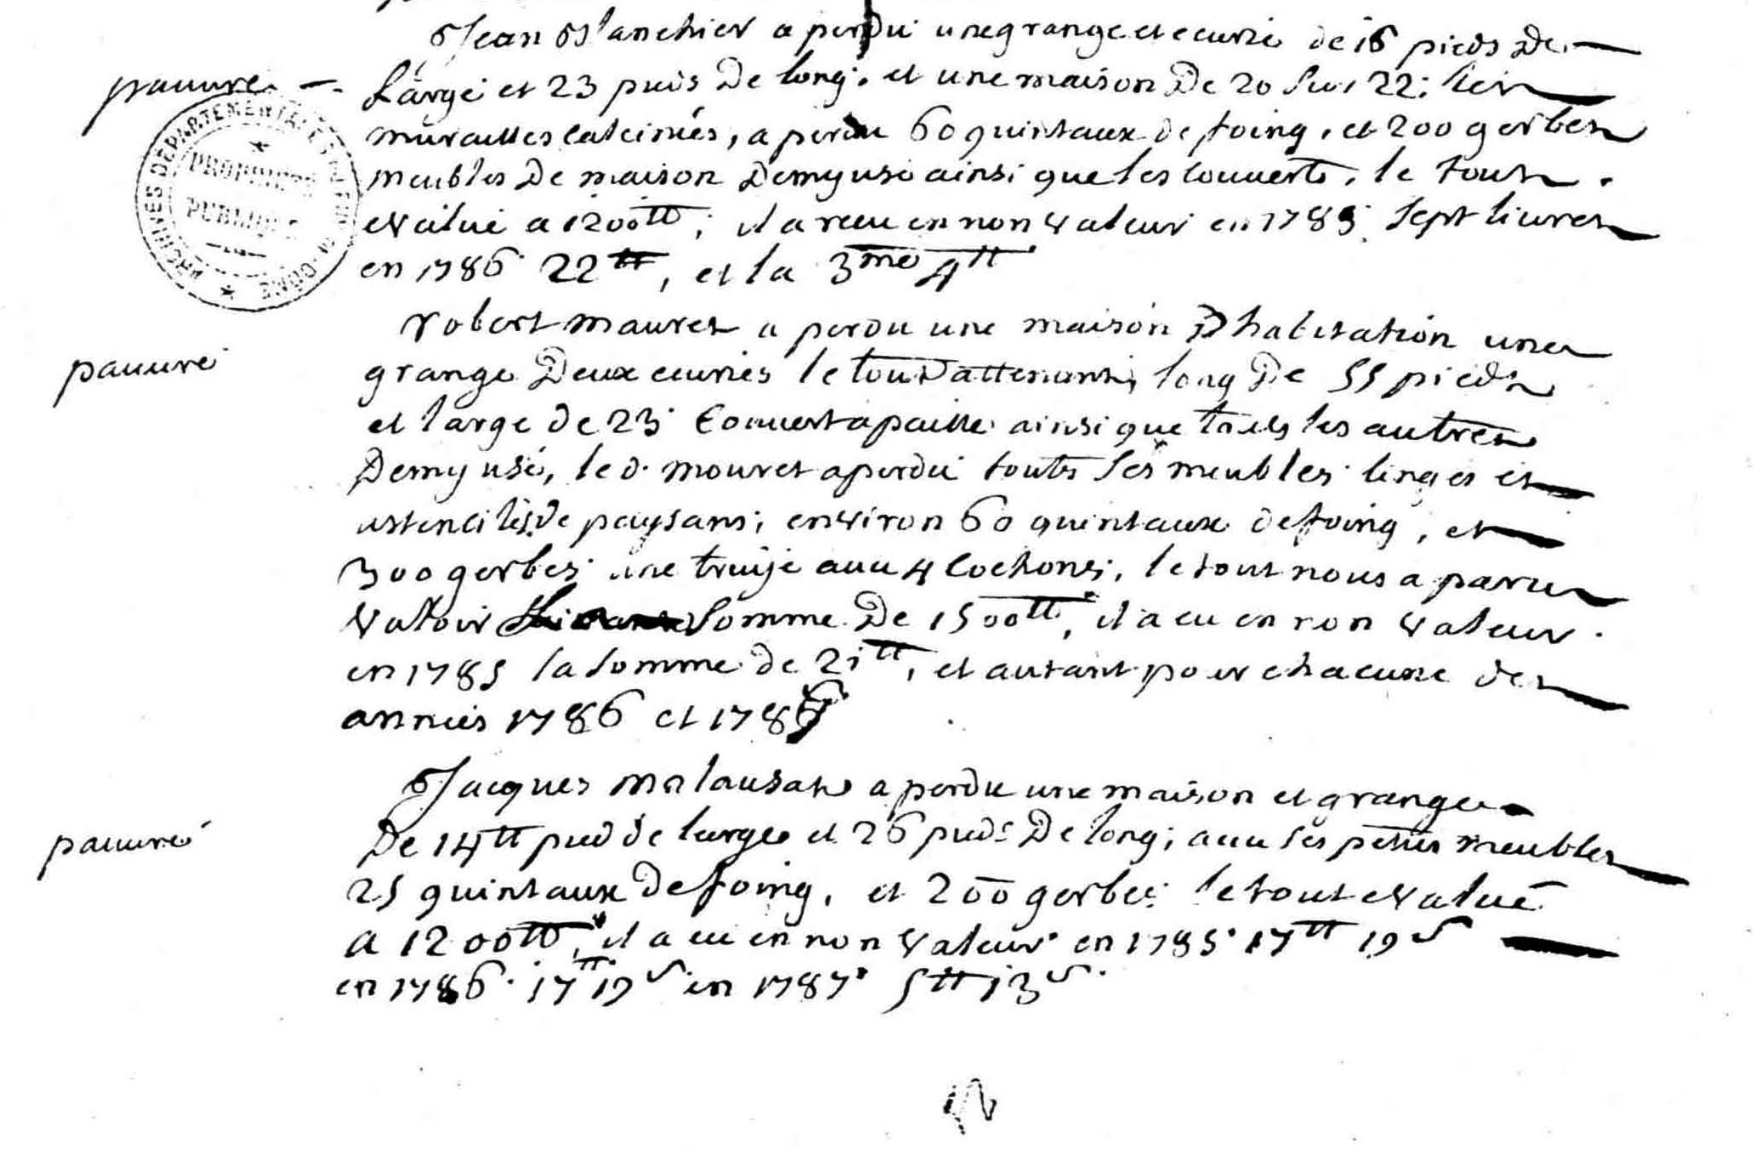 Jean Blanchier a perdu une grange et ecurie de 16 pieds de
pauvre
Large et 23 pieds De long. et une maison De 20 sur 22; les
murailles calcinées, a perdu 60 quintaux de foing, et 200 gerbes
meubles De maison Demy usé ainsi que les couverts, le tout
evalué a 1200tt; il a reçu en non valeur en 1785 sept livres
en 1786 22tt, et la 3me 4tt
robert mauret a perdu une maison D habitation une
pauvre
grange Deux ecuries le tout attenant, long De 55 pieds
et large de 23 Couvert a paille ainsi que tous les autres
Demy usé, le d. mouret a perdu touts ses meubles linges et
ustenciles de paysans; environ 60 quintaux de foing, et
300 gerbes une truye avec 4 Cochons, le tout nous a paru
valoir somme De 1500tt, il a eu en non valeur
en 1785 la somme de 21tt, et autant pour chacune des
années 1786 et 1787
Jacques malausat a perdu une maison et grange
pauvre
De 14tt pied de large et 26 pieds De long; avec ses petits meubles
25 quintaux De foing, et 200 gerbes le tout evalué
a 1200tt, il a eu en non valeur en 1785 17tt 19s
en 1786 17tt 19s en 1787 5tt 13s
ARCHIVES DEPARTEMENTALES
PROPRIETE
PUBLIQUE